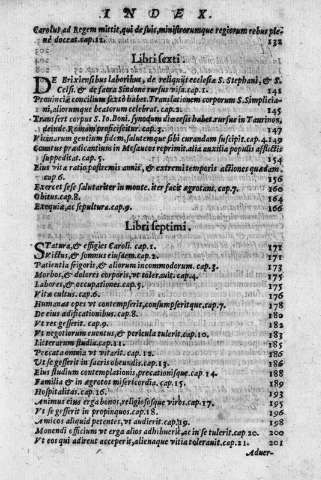 INDEX.
Carolus ad Regem mittit, qui de suis, ministrorumque regiorum rebus ple-
ne doceat. cap. 12. 132
Libri sexti.
DE Brixiensibus laboribus, de reliquijs ecclesiæ S. Stephani, & S.
Celsi. & de sacra Sindone rursus visa. cap. 1. 141
Prouinciæ concilium sextò habet. Translationem corporum S. Simplicia-
ni, aliorumque beatorum celebrat. cap. 2. 145
Transfert corpus S. Io. Boni. synodum diœcesis habet. rursus in Taurinos,
deinde Romam proficiscitur. cap. 3. 147
Vicinarum gentium fidem, salutemque sibi curandam suscipit. cap. 4. 149
Conatus prædicantium in Mesaucos reprimit. alia auxilia populis afflictis
suppeditat. cap. 5. 154
Eius vitæ ratio postremis annis, & extremi temporis actiones quædam.
cap. 6. 156
Exercet sese salutariter in monte. iter facit ægrotans. cap. 7. 160
Obitus. cap. 8. 164
Exequiæ, ac sepultura. cap. 9. 166
Libri septimi.
STatura, & effigies Caroli. cap. 1. 171
Victus, & somnus eiusdem. cap. 2. 171
Patientia frigoris, & aliorum incommodorum. cap. 3. 173
Morbos, & dolores corporis, vt tolerauit. cap. 4. 175
Labores, & occupationes. cap. 5. 175
Vitæ cultus. cap. 6. 176
Humanas opes vt contempserit, consumpseritque. cap. 7. 178
De eius ædificationibus. cap. 8. 180
Vt res gesserit. cap. 9. 182
Vt negotiorum euentus, & pericula tulerit. cap. 10. 183
Litterarum studia. cap. 11. 185
Peccata omnia vt vitarit. cap. 12. 186
Vt se gesserit in sacris obeundis. cap. 13. 186
Eius studium contemplationis, precationisque. cap. 14 188
Familia & in ægrotos misericordia. cap. 15. 189
Hospitalitas. cap. 16. 193
Animus eius erga bonos, religiososque viros. cap. 17. 195
Vt se gesserit in propinquos. cap. 18. 196
Amicos aliquid petentes, vt audierit. cap. 19. 198
Monendi officium vt erga alios adhibuerit, ac in se tulerit. cap. 20. 200
Vt eos qui adirent acceperit, alienaque vitia tolerauit. cap. 21. 201
Aduer-